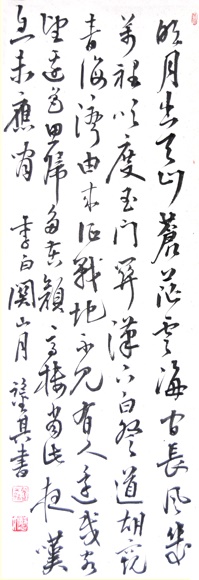 明月出天山蒼茫雲海間長風幾
萬裡吹度玉門關漢下白登道胡窺
青海灣由來征戰地不見有人還戍客
望邊色思歸多苦顏高樓當此夜嘆
息未應閒 李白關山月 其書